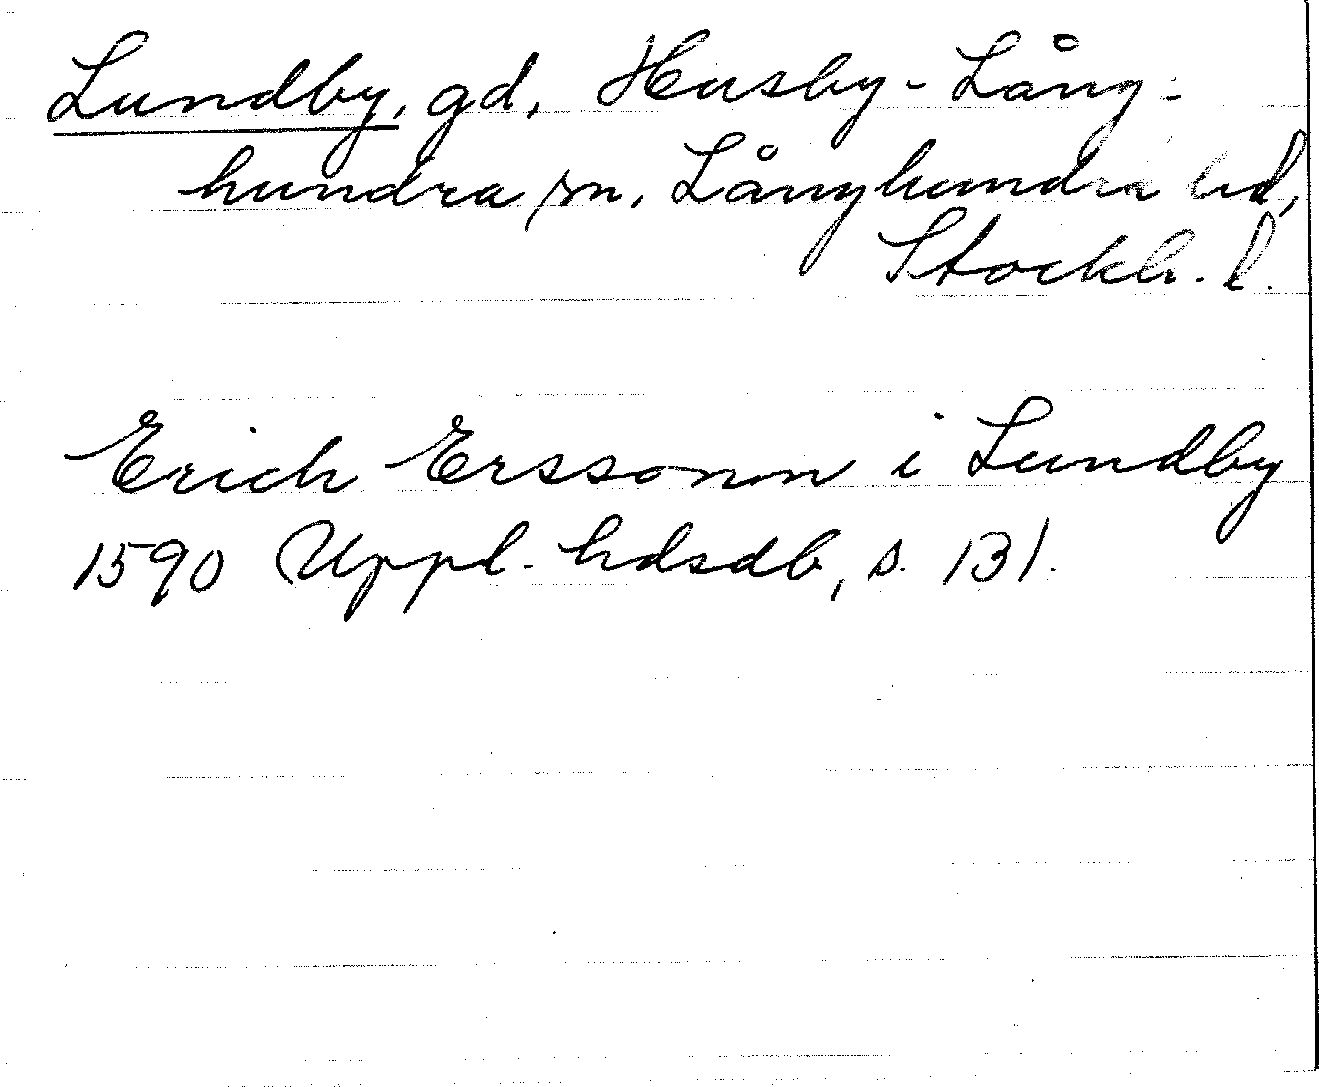 Lundby, gd, Husby-Lång-
hundra sn, Långhundra hd,
Stockh. l.
Erich Erssonn i Lundby
1590 Uppl. hdsdb, s. 131.